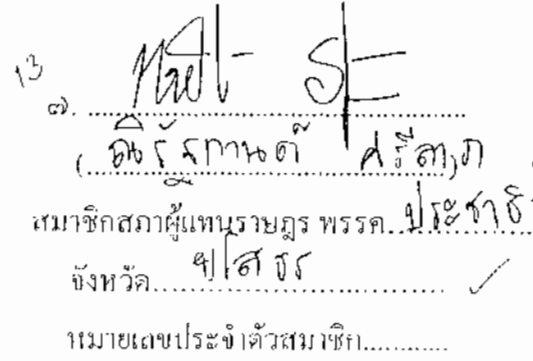 13
๗.
( ฉันรัฐกานต์ ศรีลาภ
สมาชิกสภาผู้แทนราษฎร พรรค ประชาธิ
จังหวัด ยโสธร
หมายเลขประจำตัวสมาชิก